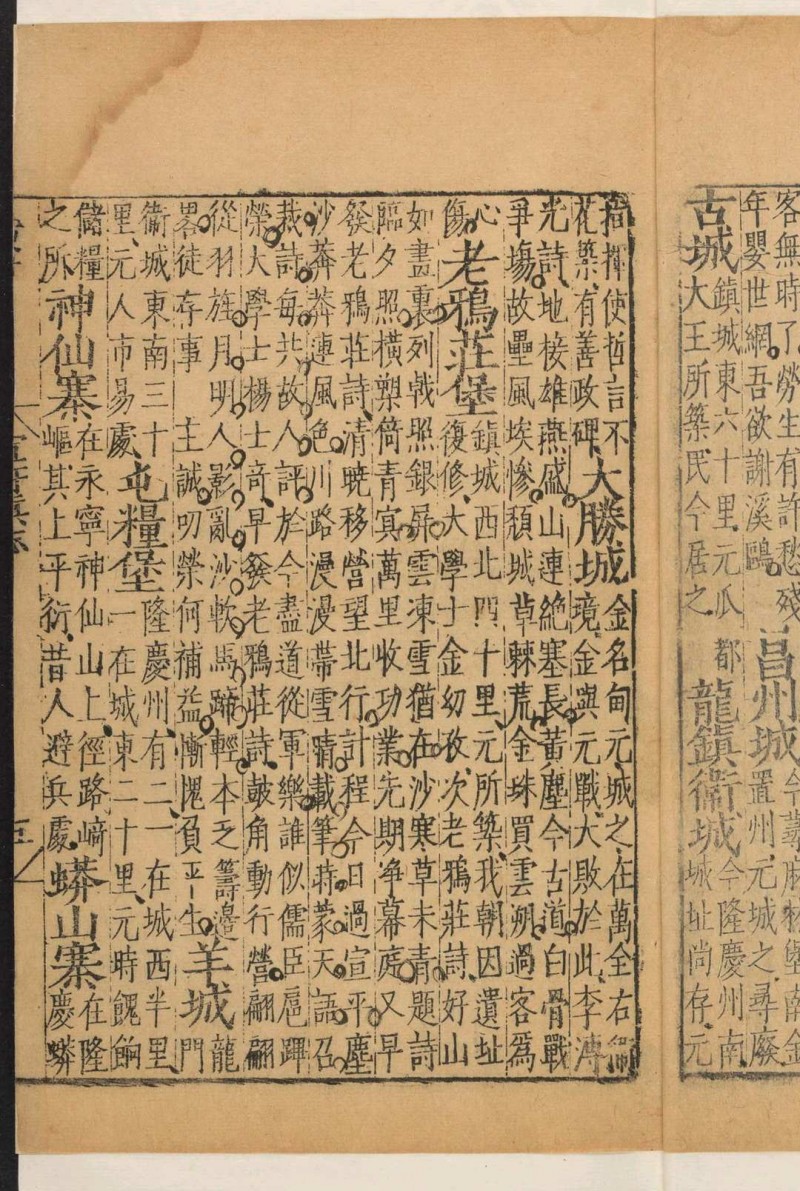 客無時了勞生有許愁殘
年嬰世網吾欲謝溪鷗
昌州城
今蕁麻林堡南金
置州元城之尋廢
古城
鎮城東六十里元瓜都
大王所築民今居之
龍鎮衛城
今隆慶州南
城址尚存元
指揮使哲言不
花築有善政碑
大勝城
金名甸元城之在萬全右衛
境金與元戰大敗於此李溥
光詩地接雄燕盛山連絕塞長黃塵今古道白骨戰
爭塲故壘風埃慘頹城草棘荒金珠買雲朔過客爲
心
傷
老鴉莊堡
鎮城西北四十里元所築我朝因遺址
復修大學士金幼孜次老鴉莊詩好山
如畫裏列戟照銀屏雲凍雪猶在沙寒草未青題詩
臨夕照橫槊倚青㝠萬里收功業先期净幕庭又早
發老鴉莊詩清曉移營望北行計程今日過宣平塵
沙莽莽連風色川路漫漫帶雪晴載筆蒔蒙天語召
裁詩每共故人評於今盡道從軍樂誰似儒臣扈蹕
榮大學士楊士竒早發老鴉莊詩皷角動行營翩翩
從羽旌月明人影亂沙軟馬蹄輕本乏籌邊
畧徒存事主誠叨榮何補益慚愧負平生
羊城
龍
門
衛城東南三十
里元人市昜處
屯糧堡
隆慶州有二一在城西半里
一在城東二十里元時餽餉
儲糧
之所
神仙寨
在永寧神仙山上徑路崎
嶇其上平衍昔人避兵處
蟒山寨
在隆
慶蟒